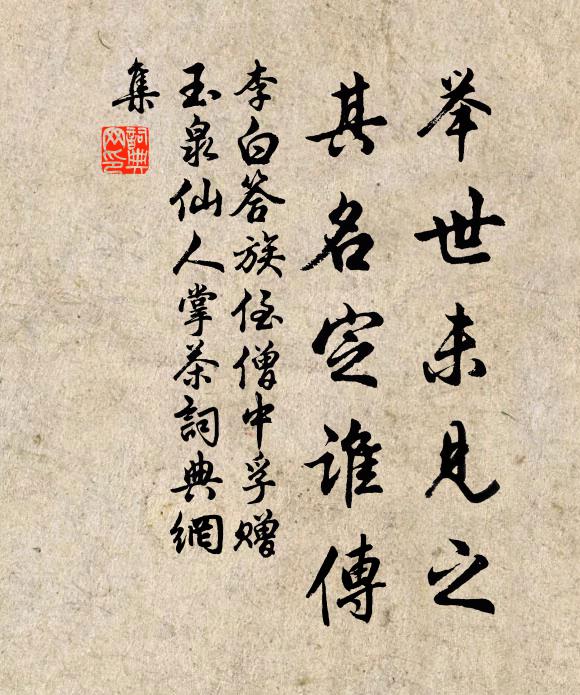 举世未见之
其名定谁傳
李白答族侄僧中孚赠
玉泉仙人掌茶詞典網
集
詞典
网印